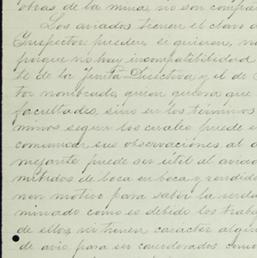 obras de la mina, no son compa
Los aviados tienen el claro d
Inspector pueden si quieren, no
porque no hay incompatibilidad
te de la Junta Directiva y el de
tor nombrado, quien quiera que
facultades, sino en los términos
minos segun los cuales puede
comunicar sus observaciones al
mejante puede ser útil al avia
mitidos de boca en boca, y
nor motivo para saber la verda
minado como es debido los traba
de ellos, no tienen caracter algun
de avio para ser considerados como